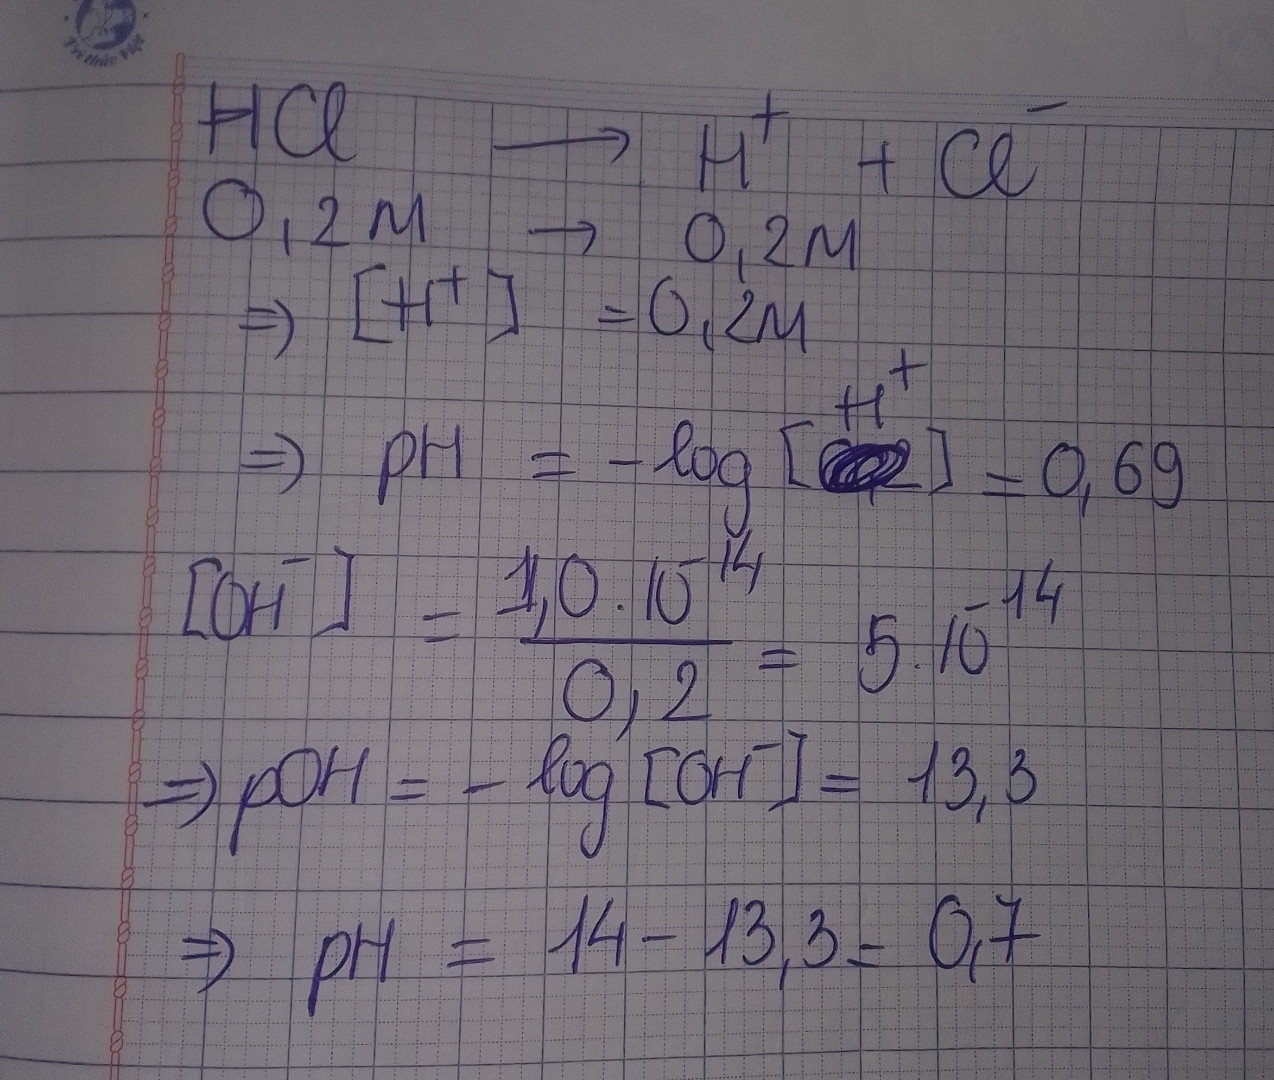 Trí thức Việt
HCl → H⁺ + Cl⁻
0,2M → 0,2M
⇒ [H⁺] = 0,2M
⇒ pH = -log [H⁺] = 0,69
[OH⁻] = 1,0.10⁻¹⁴ / 0,2 = 5.10⁻¹⁴
⇒ pOH = - log [OH⁻] = 13,3
⇒ pH = 14 - 13,3 = 0,7